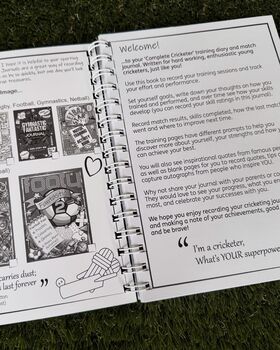 I hope it is helpful to your sporting
Journals are a great way of recording
Image...
Rugby, Football, Gymnastics, Netball)
GYMNASTIC
FANTASTIC
JOURNAL
carries dust;
last forever ”
Welcome!
...to your 'Complete Cricketer' training diary and match
journal. Written for hard working, enthusiastic young
cricketers, just like you!
Use this book to record your training sessions and track
your effort and performance.
Set yourself goals, write down your thoughts on how you
trained and performed, and over time see how your skills
develop (you can record your skill ratings in this journal).
Record match results, skills completed, how the last match
went and where to improve next time.
The training pages have different prompts to help you
discover more about yourself, your strengths and how you
can achieve your best.
You will also see inspirational quotes from famous
as well as blank pages for you to record quotes, tips
capture autographs from people who inspire you.
Why not share your journal with your parents or
They would love to see your progress, what you
most, and celebrate your success with you.
We hope you enjoy recording your cricketing journey
and making a note of your achievements, good
are brave!
“ I'm a cricketer,
What's YOUR superpower